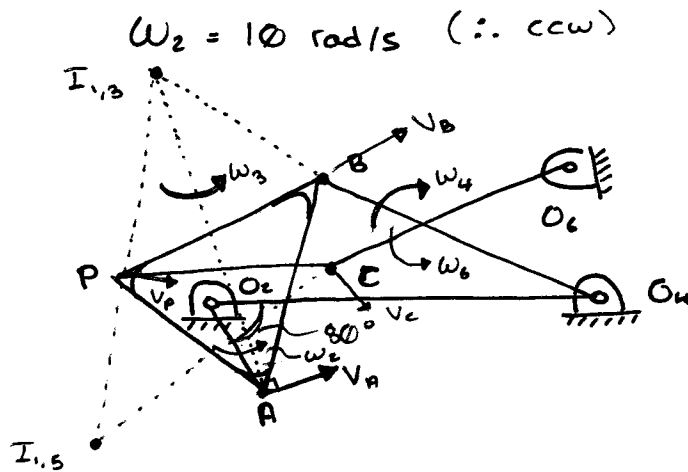 ω₂ = 10 rad/s (∴ ccw)
I₁,₃
V_B
B
ω₃
ω₄
O₆
P
O₂
C
ω₆
O₄
V_P
80°
V_C
ω₂
V_A
A
I₁,₅